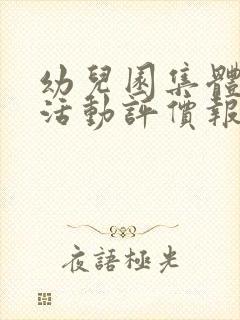 幼兒園集體
活動評價報
夜語極光